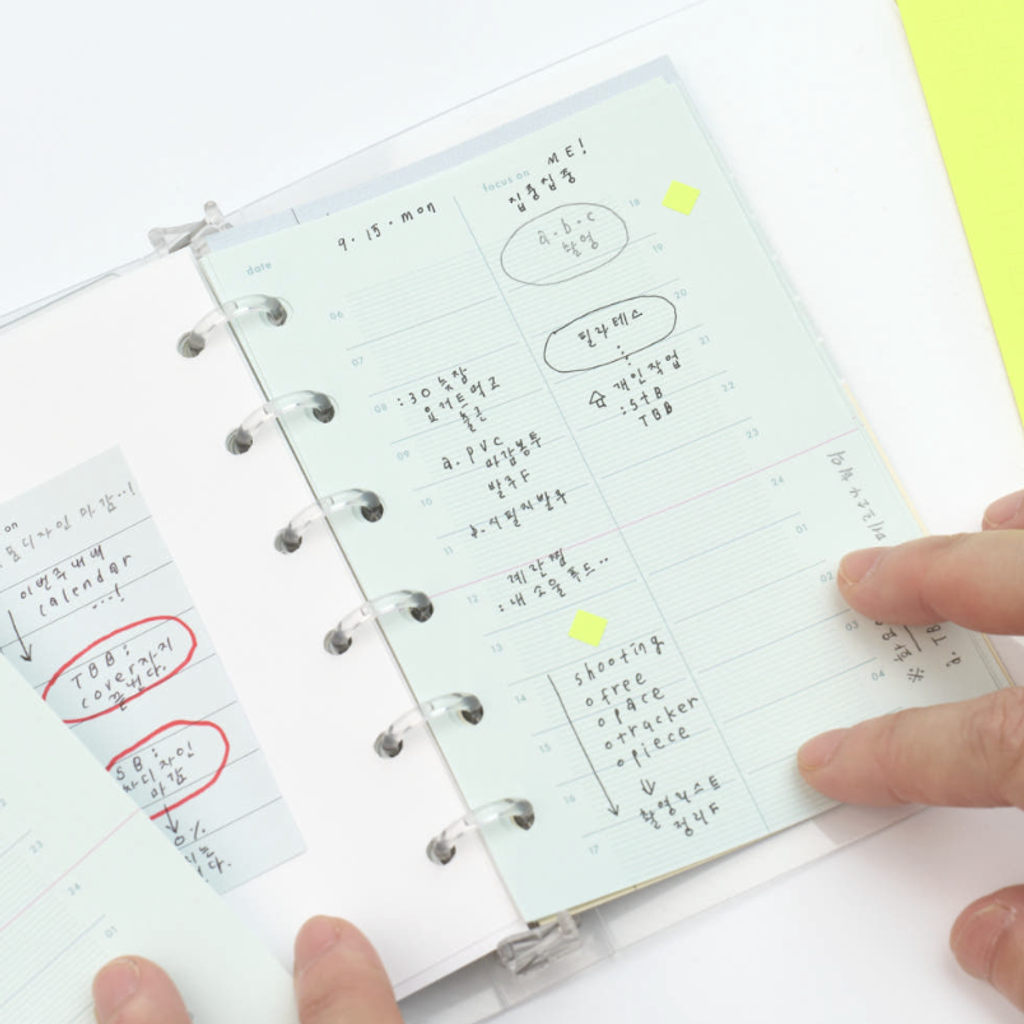 date
9. 15. mon
06
07
08
:30 늦잠
요거트먹고
출근
09
a. PVC
마감봉투
발주F
10
b. 시필지발주
11
12
계란찜
: 내 소울 푸드..
13
shooting
o free
o pace
o tracker
o piece
14
15
16
촬영리스트
정리F
17
focus on
ME!
집중집중
18
a.b.c
촬영
19
20
필라테스
21
개인작업
: StB
TBB
22
23
24
01
02
03
04
on
디자인 마감..!
이번주내내
calendar
...!
TBB:
cover까지
끝낸다.
SB:
디자인
마감
0%
23
24
01